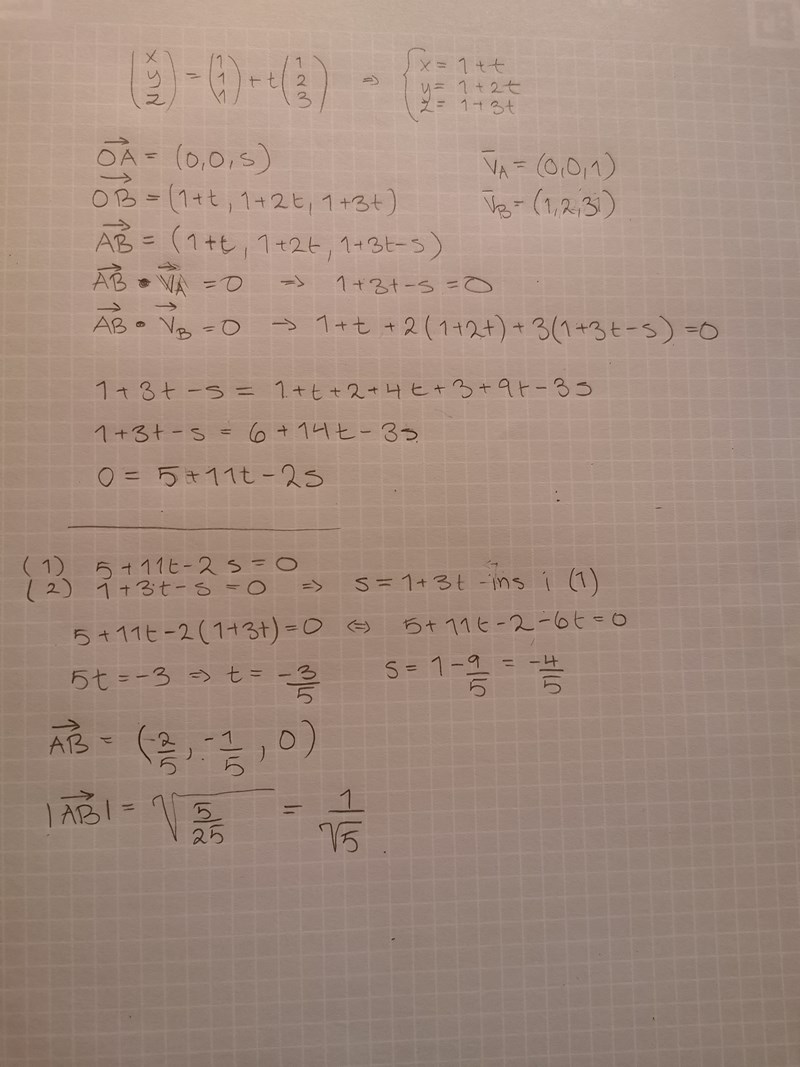 (x y z) = (1 1 1) + t (1 2 3) => { x = 1+t
y = 1+2t
z = 1+3t
OA = (0,0,s) V̄A = (0,0,1)
OB = (1+t, 1+2t, 1+3t) V̄B = (1,2,3)
AB = (1+t, 1+2t, 1+3t-s)
AB • VA = 0 => 1+3t-s = 0
AB • VB = 0 → 1+t + 2(1+2t) + 3(1+3t-s) = 0
1+3t-s = 1+t+2+4t+3+9t-3s
1+3t-s = 6+14t-3s
0 = 5+11t-2s
(1) 5+11t-2s = 0
(2) 1+3t-s = 0 => s = 1+3t ins i (1)
5+11t-2(1+3t) = 0 <=> 5+11t-2-6t = 0
5t = -3 => t = -3/5 s = 1-9/5 = -4/5
AB = (-2/5, -1/5, 0)
|AB| = √(5/25) = 1/√5.